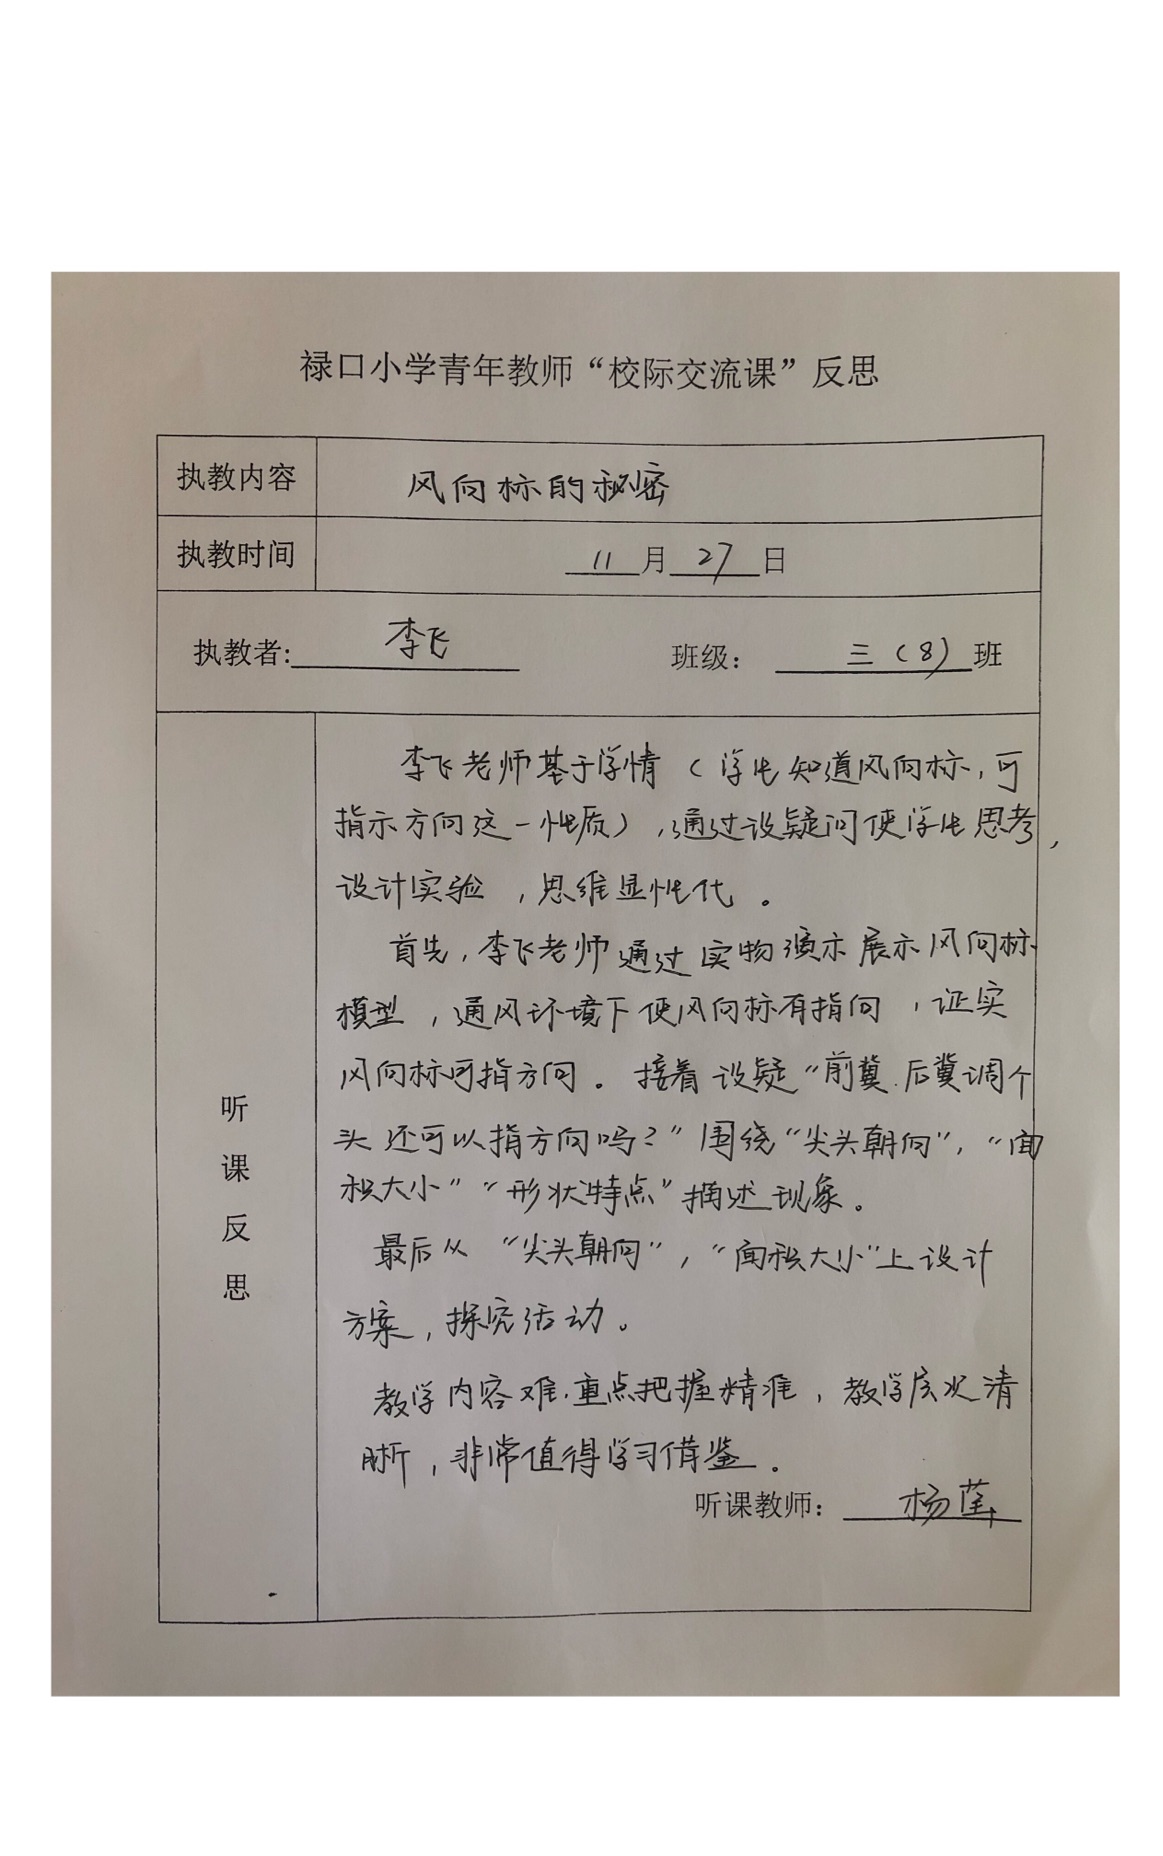 禄口小学青年教师“校际交流课”反思
执教内容 风向标的秘密
执教时间 11月27日
执教者: 李飞 班级： 三（8）班
听课反思
李飞老师基于学情（学生知道风向标，可
指示方向这一性质），通过设疑问使学生思考，
设计实验，思维显性化。
首先，李飞老师通过实物演示展示风向标
模型，通风环境下使风向标有指向，证实
风向标可指方向。接着设疑“前冀、后冀调个
头还可以指方向吗？”围绕“尖头朝向”，“面
积大小”“形状特点”描述现象。
最后从“尖头朝向”，“面积大小”上设计
方案，探究活动。
教学内容难、重点把握精准，教学层次清
晰，非常值得学习借鉴。
听课教师： 杨